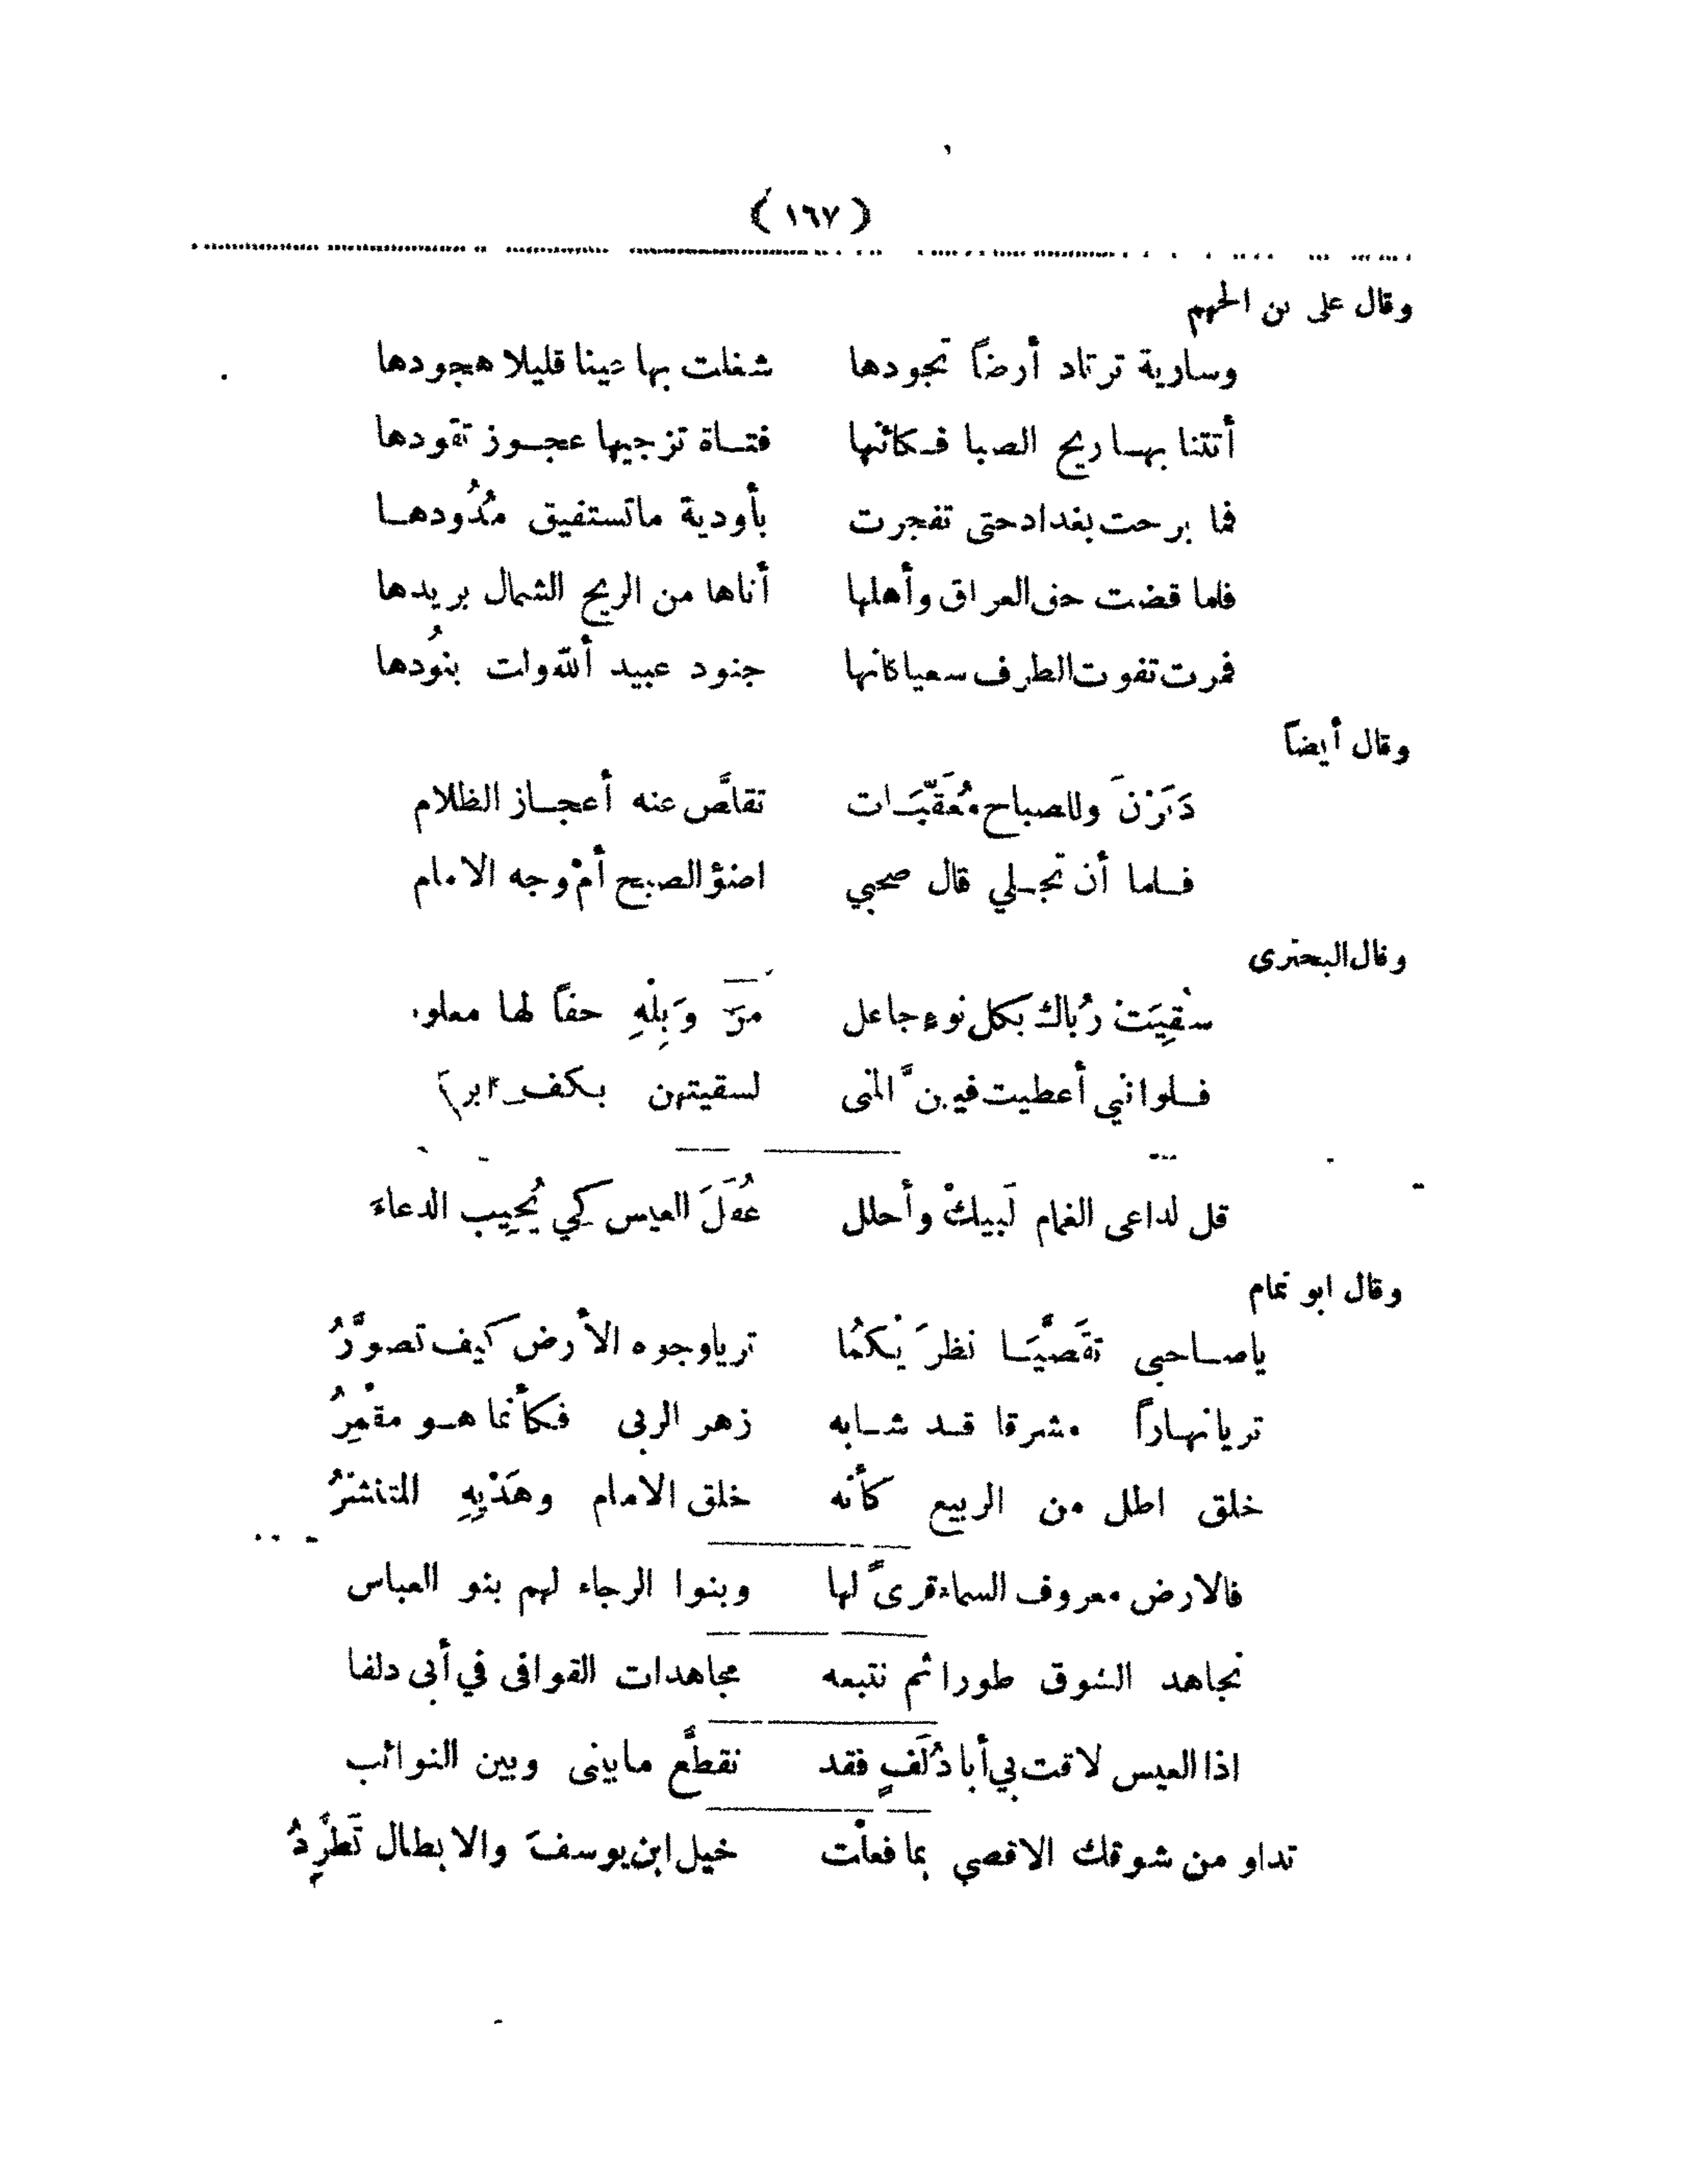 ( ١٦٧ )
وقال على بن الجهم
وسارية ترتاد أرضاً تجودها شغلت بها عينا قليلا هجودها
أتتنا بهـا ريح الصبا فـكائنها فتـاة تزجيها عجـوز تقودها
فما برحت بغداد حتى تفجرت بأودية ماتستفيق مُدُودهـا
فلما قضت حق العراق وأهلها أتاها من الريح الشمال بريدها
فمرت تفوت الطرف سعيا كانها جنود عبيد ألله ولت بنُودها
وقال أيضاً
وللصباح مُعَقّبَـات تقلَّص عنه أعجـاز الظلام
فـلما أن تجـلي قال صحبي اضؤ الصبح أمْ وجه الامام
وقال البحترى
سُقِيَتْ رُباك بكل نوء جاعل وَبِلْهِ حقاً لها
فـلوانني أعطيت فيهنَّ المنى لسقيتهن بـكف
قل لداعى الغمام لَبيكْ وأحلل عُقَلَ العيس كي يُجِيب الدعاءَ
وقال ابو تمام
ياصـاحبى تقَصَّيَـا نظرَيْكمُا تريا وجوه الأرض كيف تصوَّرُ
تريا نهـاراً مشرقا قـد شـابه زهر الربى فـكأنما هـو مقْمِرُ
خلق اطل من الربيع كأنه خلق الامام وهَدْيِهِ المتنشرُ
فالارض معروف السماء قرىً لها وبنوا الرجاء لهم بنو العباس
نجاهد الشوق طورا ثم نتبعه مجاهدات القوافى في أبى دلفا
اذا العيس لاقت بي أبا دُلَفٍ فقد نقطَّع مابينى وبين النوائب
تداو من شوقك الاقصي بما فعلْت خيل ابن يوسفَ والابطال تَطَّرِدُ